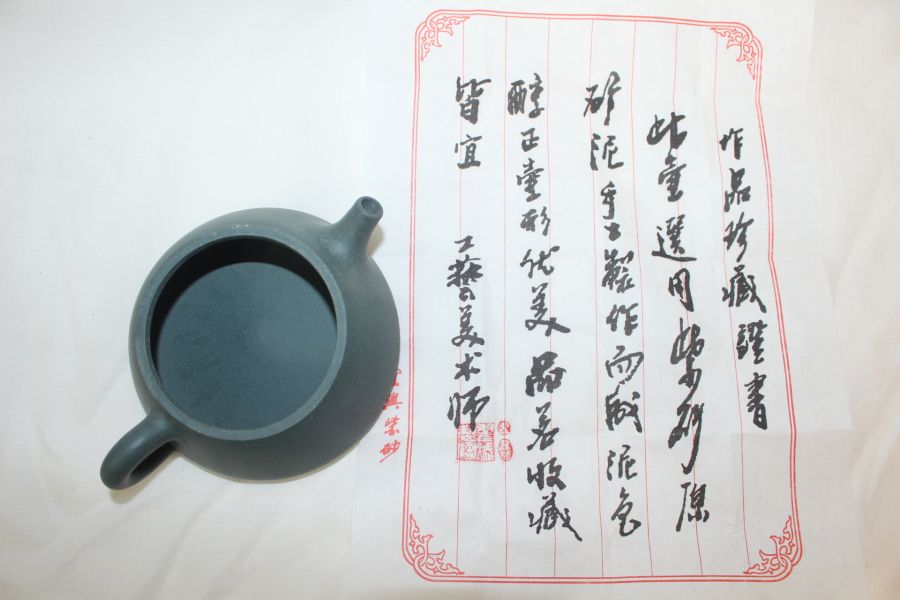 作品珍藏證書
此壶選用紫砂原
矿泥手工製作而成泥色
醇正壶形优美品茗收藏
皆宜 工藝美术师
興紫砂